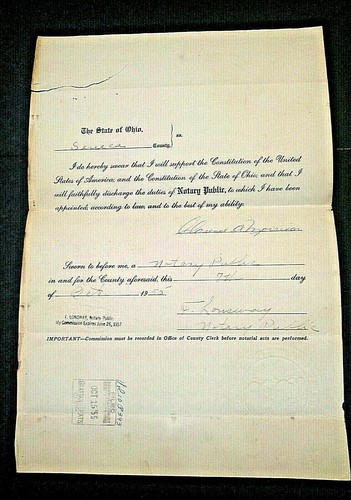 The State of Ohio,
Seneca County, } ss.
I do hereby swear that I will support the Constitution of the United
States of America; and the Constitution of the State of Ohio; and that I
will faithfully discharge the duties of Notary Public, to which I have been
appointed; according to law, and to the best of my ability.
Morrison
Sworn to before me, a Notary Public
in and for the County aforesaid, this 7th day
of Oct 1955
F. Lonsway
Notary Public
F. LONSWAY, Notary Public
My Commission Expires June 26, 1957
IMPORTANT—Commission must be recorded in Office of County Clerk before notarial acts are performed.
OCT 15 '55